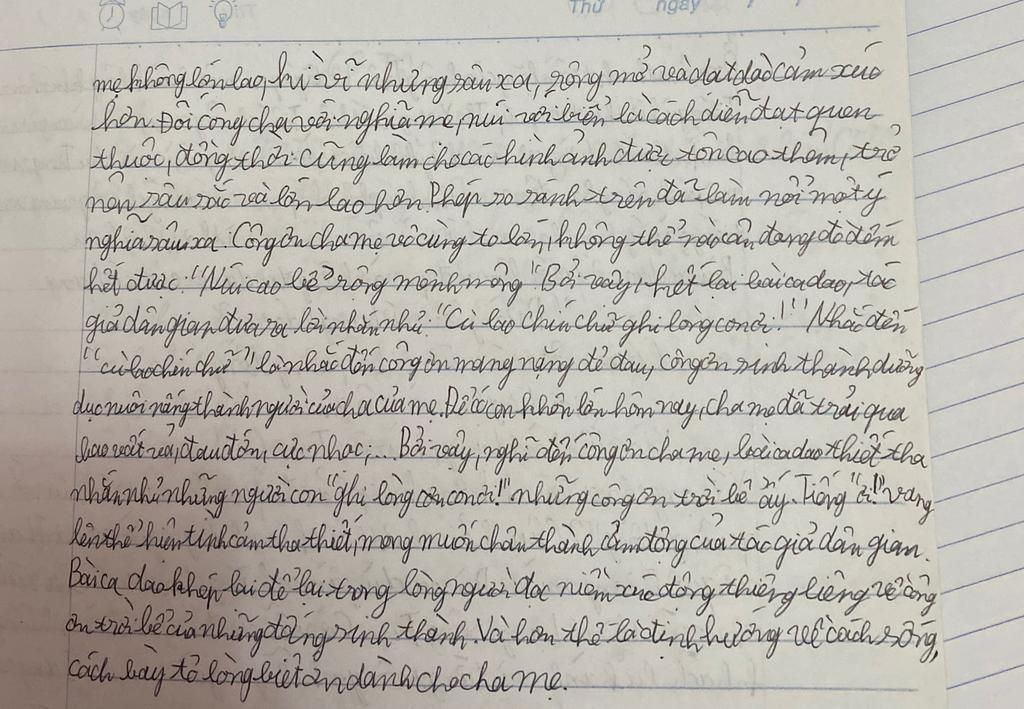 Thứ ngày
mẹ không lớn lao, kì vĩ nhưng sâu xa, rộng mở và dạt dào cảm xúc
hơn. Đối công cha với nghĩa mẹ, núi với biển là cách diễn đạt quen
thuộc, đồng thời cũng làm cho các hình ảnh được tôn cao thêm, trở
nên sâu sắc và lớn lao hơn. Phép so sánh trên đã làm nổi một ý
nghĩa sâu xa: Công ơn cha mẹ vô cùng to lớn, không thể nào cân đong đo đếm
hết được: "Núi cao bể rộng mênh mông" Bởi vậy, kết lại bài ca dao, tác
giả dân gian đưa ra lời nhắn nhủ: "Cù lao chín chữ ghi lòng con ơi!" Nhắc đến
"cù lao chín chữ" là nhắc đến công ơn mang nặng đẻ đau, công ơn sinh thành dưỡng
dục nuôi nấng thành người của cha của mẹ. Để có con khôn lớn hôm nay, cha mẹ đã trải qua
bao vất vả, đau đớn, cực nhọc;... Bởi vậy, nghĩ đến công ơn cha mẹ, bài ca dao thiết tha
nhắn nhủ những người con "ghi lòng con ơi!" những công ơn trời bể ấy. Tiếng "ơi!" vang
lên thể hiện tình cảm tha thiết, mong muốn chân thành cảm động của tác giả dân gian.
Bài ca dao khép lại để lại trong lòng người đọc niềm xúc động thiêng liêng về công
ơn trời bể của những đấng sinh thành. Và hơn thế là định hướng về cách sống,
cách bày tỏ lòng biết ơn dành cho cha mẹ.